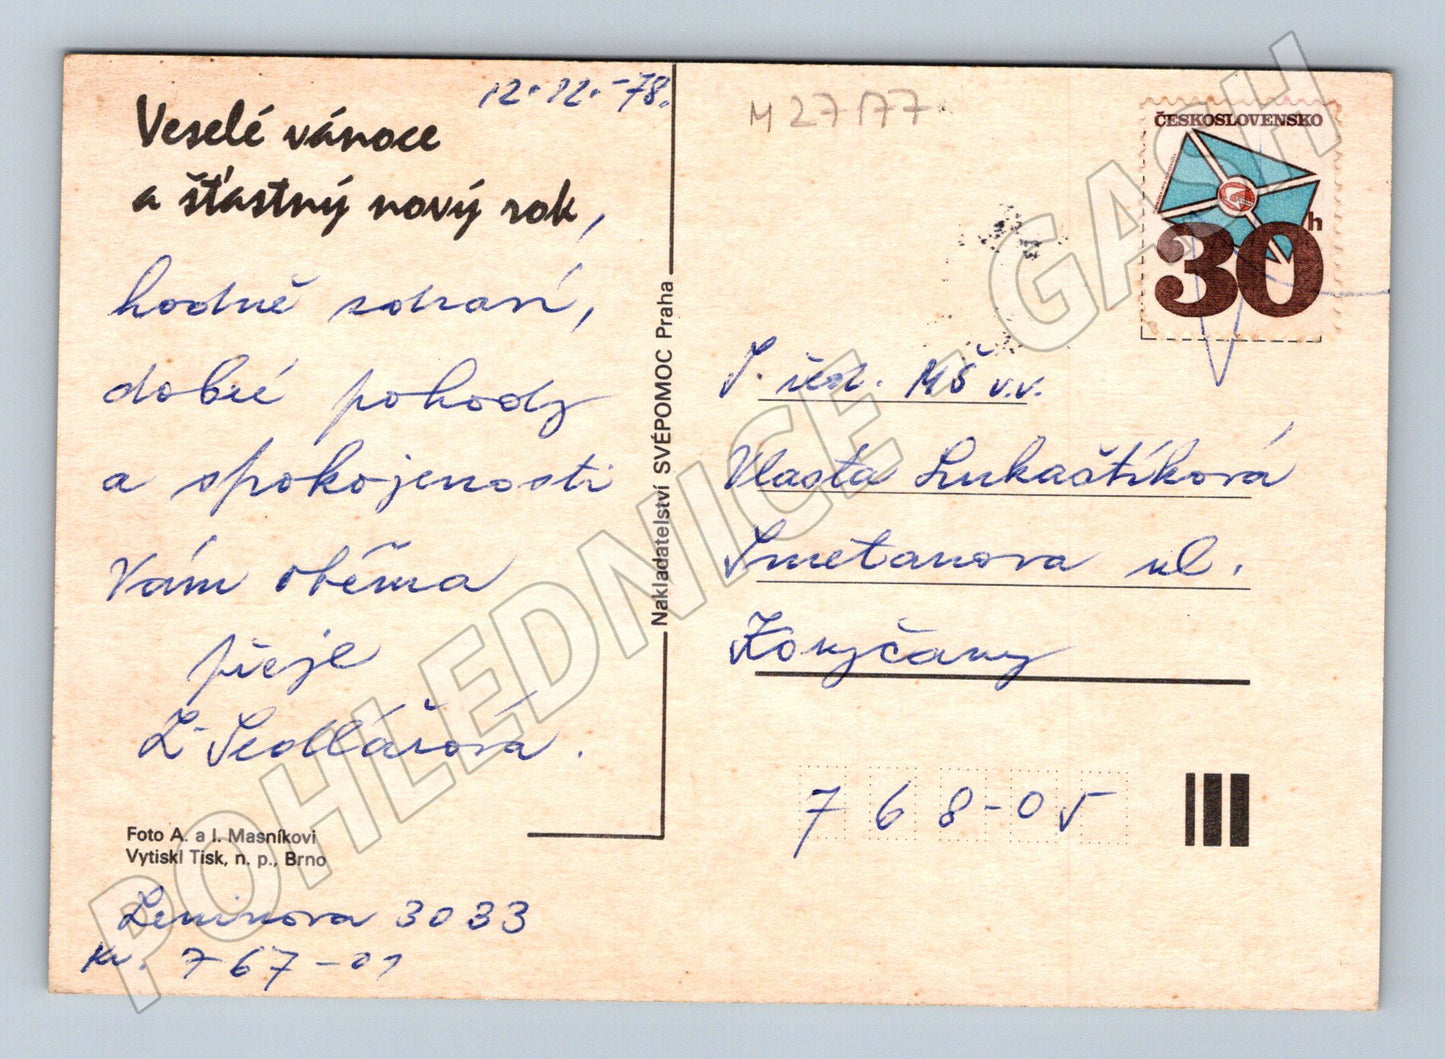 12.12.-78.
Veselé vánoce
a šťastný nový rok,
hodně zdraví,
dobré pohody
a spokojenosti
Vám oběma
přeje
L. Sedlářová.
Foto A. a I. Masníkovi
Vytiskl Tisk, n. p., Brno
Leninova 3033
Kr. 767-01
Nakladatelství SVÉPOMOC Praha
M 27177.
ČESKOSLOVENSKO
30h
S. řed. MŠ v.v.
Vlasta Lukaštíková
Smetanova ul.
Koryčany
768-05
POHLEDNICE - GASH